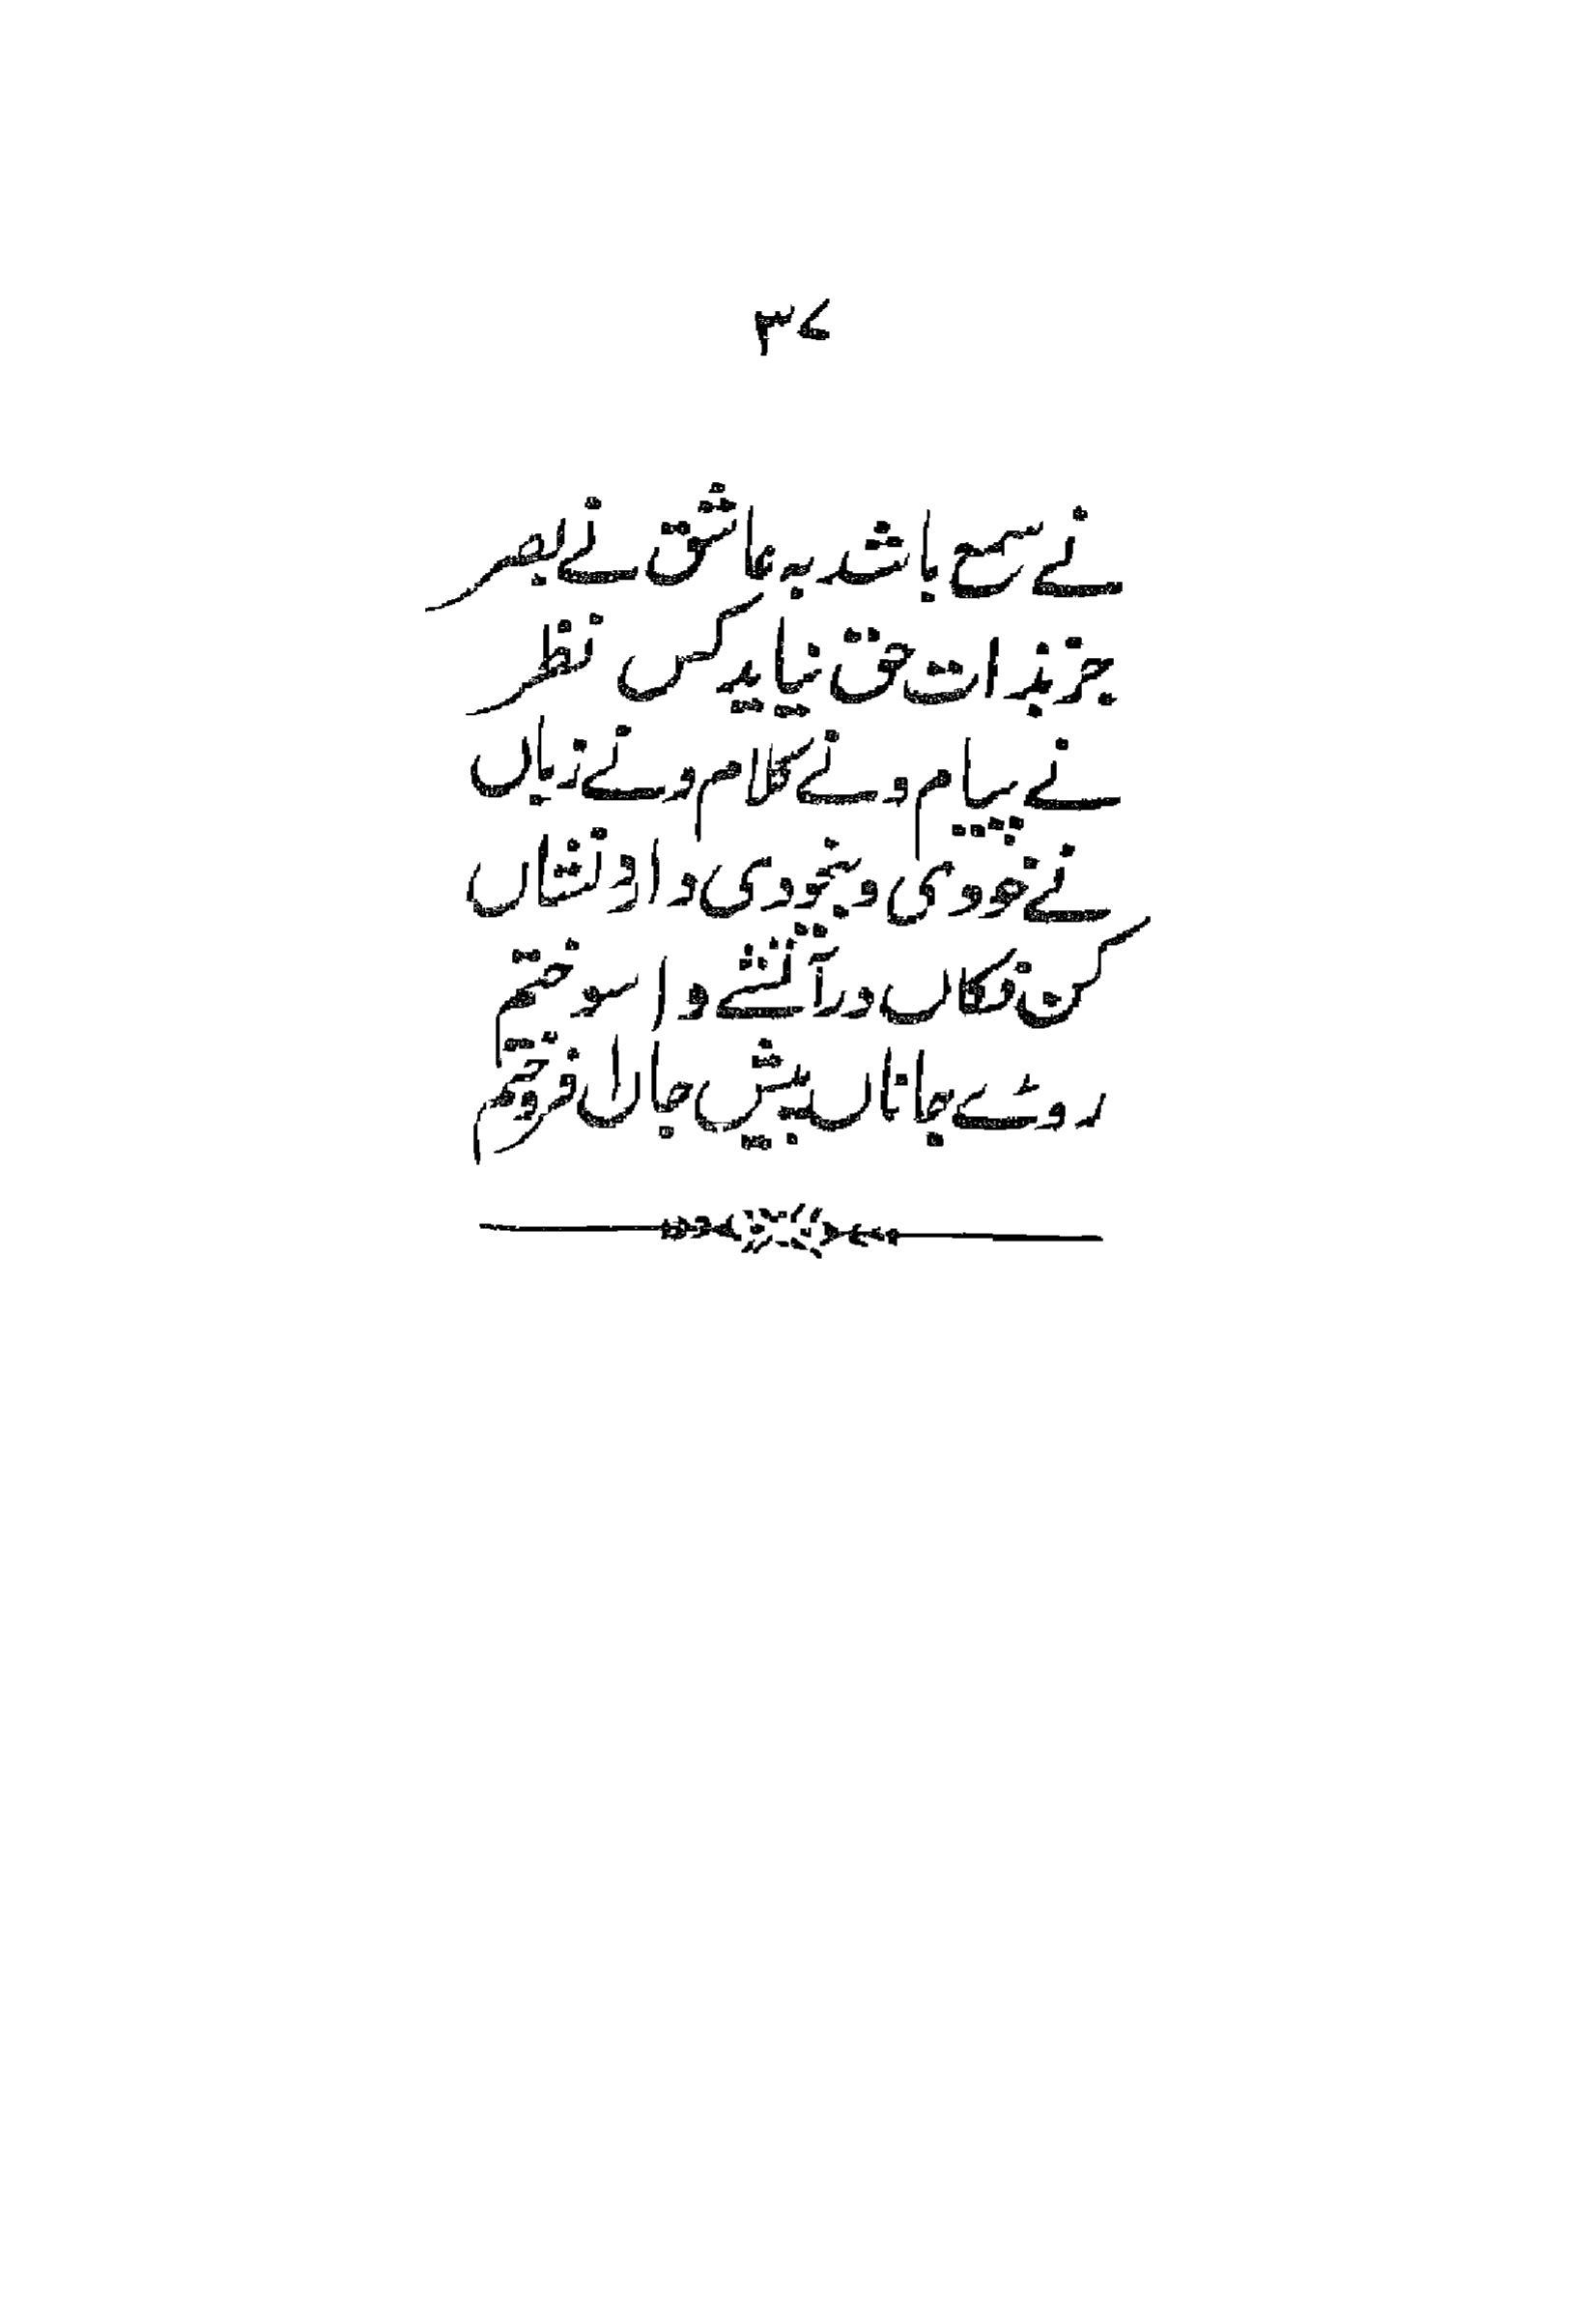 ۳۷
نے سمع باشد بہ عاشق نے بصر
جز بذات حق نیاید کس نظر
نے پیام و نے کلام و نے زباں
نے خودی و بیخودی و او نشاں
کن فکاں در آتشے وا سوختم
روئے جاناں پیش جاں افروختم